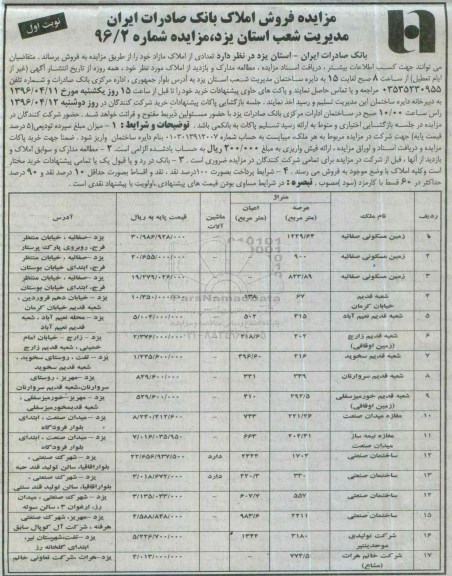 مزایده فروش املاک بانک صادرات ایران
مدیریت شعب استان یزد،مزایده شماره ۹۶/۲
نوبت اول
بانک صادرات ایران - استان یزد در نظر دارد تعدادی از املاک مازاد خود را از طریق مزایده به فروش برساند . متقاضیان
می توانند جهت کسب اطلاعات بیشتر ، دریافت اسناد مزایده ، مطالعه مدارک و بازدید از املاک مورد نظر خود ، همه روزه از تاریخ انتشار آگهی (غیر از
ایام تعطیل) از ساعت ۸ صبح لغایت ۱۵ به دایره ساختمان مدیریت شعب استان یزد به آدرس بلوار جمهوری ، اداره مرکزی بانک صادرات و شماره تلفن
۰۳۵۳۵۲۳۰۹۵۵ مراجعه و یا تماس حاصل نمایند و پاکت های حاوی پیشنهادات خرید خود را تا قبل از ساعت ۱۵ روز یکشنبه مورخ ۱۳۹۶/۰۴/۱۱
به دبیرخانه دایره ساختمان این مدیریت تسلیم و رسید اخذ نمایند . جلسه بازگشایی پاکات پیشنهادات خرید شرکت کنندگان در روز دوشنبه ۱۳۹۶/۰۴/۱۲
راس ساعت ۱۰/۰۰ صبح در ساختمان ادارات مرکزی بانک صادرات یزد با حضور مسئولین ذیربط مفتوح و قرائت خواهد شد . حضور شرکت کنندگان در
مزایده در جلسه بازگشایی اختیاری و منوط به ارائه رسید تسلیم پاکات به بانک می باشد . توضیحات و شرایط : ۱ – میزان سپرده تودیعی (۵ درصد
قیمت پایه) جهت شرکت در مزایده مربوط به هر ملک میبایست به حساب شماره بنام دایره ساختمان واریز شود . ضمنا جهت خرید پاکات
مزایده و دریافت اسناد و اوراق مزایده ، ارائه فیش واریزی به مبلغ ۲۰۰/۰۰۰ ریال به حساب یادشده الزامی است. ۲ – مطالعه مدارک و سوابق املاک و
بازدید از آنها ، قبل از شرکت در مزایده برای تمامی شرکت کنندگان در مزایده ضروری است . ۳ – بانک در رد و یا قبول یک یا تمامی پیشنهادات خرید مختار
است وکلیه املاک با وضع موجود به فروش می رسند . ۴ – شرایط پرداخت بصورت ۱۰۰درصد نقد ، نقد و اقساط بصورت حداقل ۱۰ درصد نقد و ۹۰ درصد
حداکثر در ۶۰ قسط با کارمزد (سود) مصوب . تبصره : در شرایط مساوی بودن قیمت های پیشنهادی ،اولویت با پیشنهاد نقدی است .
ردیف نام ملک متراژ عرصه (متر مربع) اعیان (متر مربع) ماشین آلات قیمت پایه به ریال آدرس
۱ زمین مسکونی صفائیه ۱۲۲۹/۶۴ – – ۳۰/۹۸۶/۹۲۸/۰۰۰ یزد -صفائیه ، خیابان منتظر فرج، روبروی پارک پرستار
۲ زمین مسکونی صفائیه ۹۰۰ – – ۲۰/۶۵۵/۰۰۰/۰۰۰ یزد -صفائیه ، خیابان منتظر فرج، ابتدای خیابان بوستان
۳ زمین مسکونی صفائیه ۸۳۳/۸۹ – – ۱۹/۲۷۹/۰۲۶/۰۰۰ یزد -صفائیه ، خیابان منتظر فرج، ابتدای خیابان بوستان
۴ شعبه قدیم خیابان کرمان ۶۷ ۱۳۸ – ۱۰/۳۵۰/۰۰۰/۰۰۰ یزد – خیابان دهم فروردین ، شعبه قدیم خیابان کرمان
۵ شعبه قدیم نعیم آباد ۳۱۵ ۵۰۲ – ۵/۰۰۴/۰۰۰/۰۰۰ یزد -محله نعیم آباد ، شعبه قدیم نعیم آباد
۶ شعبه قدیم زارچ (زمین اوقافی) ۳۰۲ ۳۱۸/۶ – ۲/۳۷۶/۰۰۰/۰۰۰ یزد – زارچ – خیابان امام خمینی ، شعبه قدیم زارچ
۷ شعبه قدیم سخوید ۲۱۶ ۲۹۶/۶۰ – ۱/۲۳۵/۶۰۰/۰۰۰ یزد – تفت ، روستای سخوید ، شعبه قدیم سخوید
۸ شعبه قدیم سروارتان ۳۳۹ ۲۳۱ – ۸۲۹/۶۰۰/۰۰۰ یزد -مهریز ، روستای سروارتان،شعبه قدیم سروارتان
۹ شعبه قدیم خورمیزسفلی (زمین اوقافی) ۲۹۲/۵ ۲۱۰ – ۵۲۹/۶۰۰/۰۰۰ یزد -مهریز-خورمیزسفلی ، شعبه قدیم خورمیزسفلی
۱۰ مغازه میدان صنعت ۲۲۱/۲۶ ۷۳۳ – ۸/۲۳۰/۲۱۲/۶۰۰ یزد – میدان صنعت ، ابتدای بلوار فرودگاه
۱۱ مغازه نیمه ساز میدان صنعت ۲۰۴/۳۱ ۶۶۳ – ۷/۰۱۶/۰۳۵/۹۵۰ یزد – میدان صنعت ، ابتدای بلوار فرودگاه
۱۲ ساختمان صنعتی ۱۷۰۲ ۲۴۴۴ دارد ۲۲/۶۵۶/۹۳۷/۵۰۰ یزد – شهرک صنعتی ، بلواراقاقیا، سالن تولید قند حبه
۱۳ ساختمان صنعتی ۳۳۰ ۴۲۰/۳ دارد ۴/۰۱۸/۶۷۲/۰۰۰ یزد – شهرک صنعتی ، بلواراقاقیا، سالن تولید قند سنتی
۱۴ ساختمان صنعتی ۵۵۷ ۶۰۷/۷ – ۳/۱۳۵/۰۳۳/۰۰۰ یزد – شهرک صنعتی ، میدان رز، ارغوان ۳ ، سالن سوله
۱۵ ساختمان صنعتی ۲۲۱۱ ۹۸۳/۶ – ۴/۵۸۸/۸۴۸/۰۰۰ یزد – مهریز، شهرک صنعتی هرفته ، شرکت آل کوپال سابق
۱۶ شرکت تولیدی موحدبنتیر ۳۱۸۰ ۱۳۴۲ – ۵/۲۲۶/۷۰۰/۰۰۰ یزد – تفت،شهرستان نیر، ابتدای گلخانه رز
۱۷ شرکت خاتم هرات (مشاع) ۷۷۲/۵ – ۲/۰۱۳/۰۰۰/۰۰۰ یزد-هرات ،شرکت تعاونی خاتم